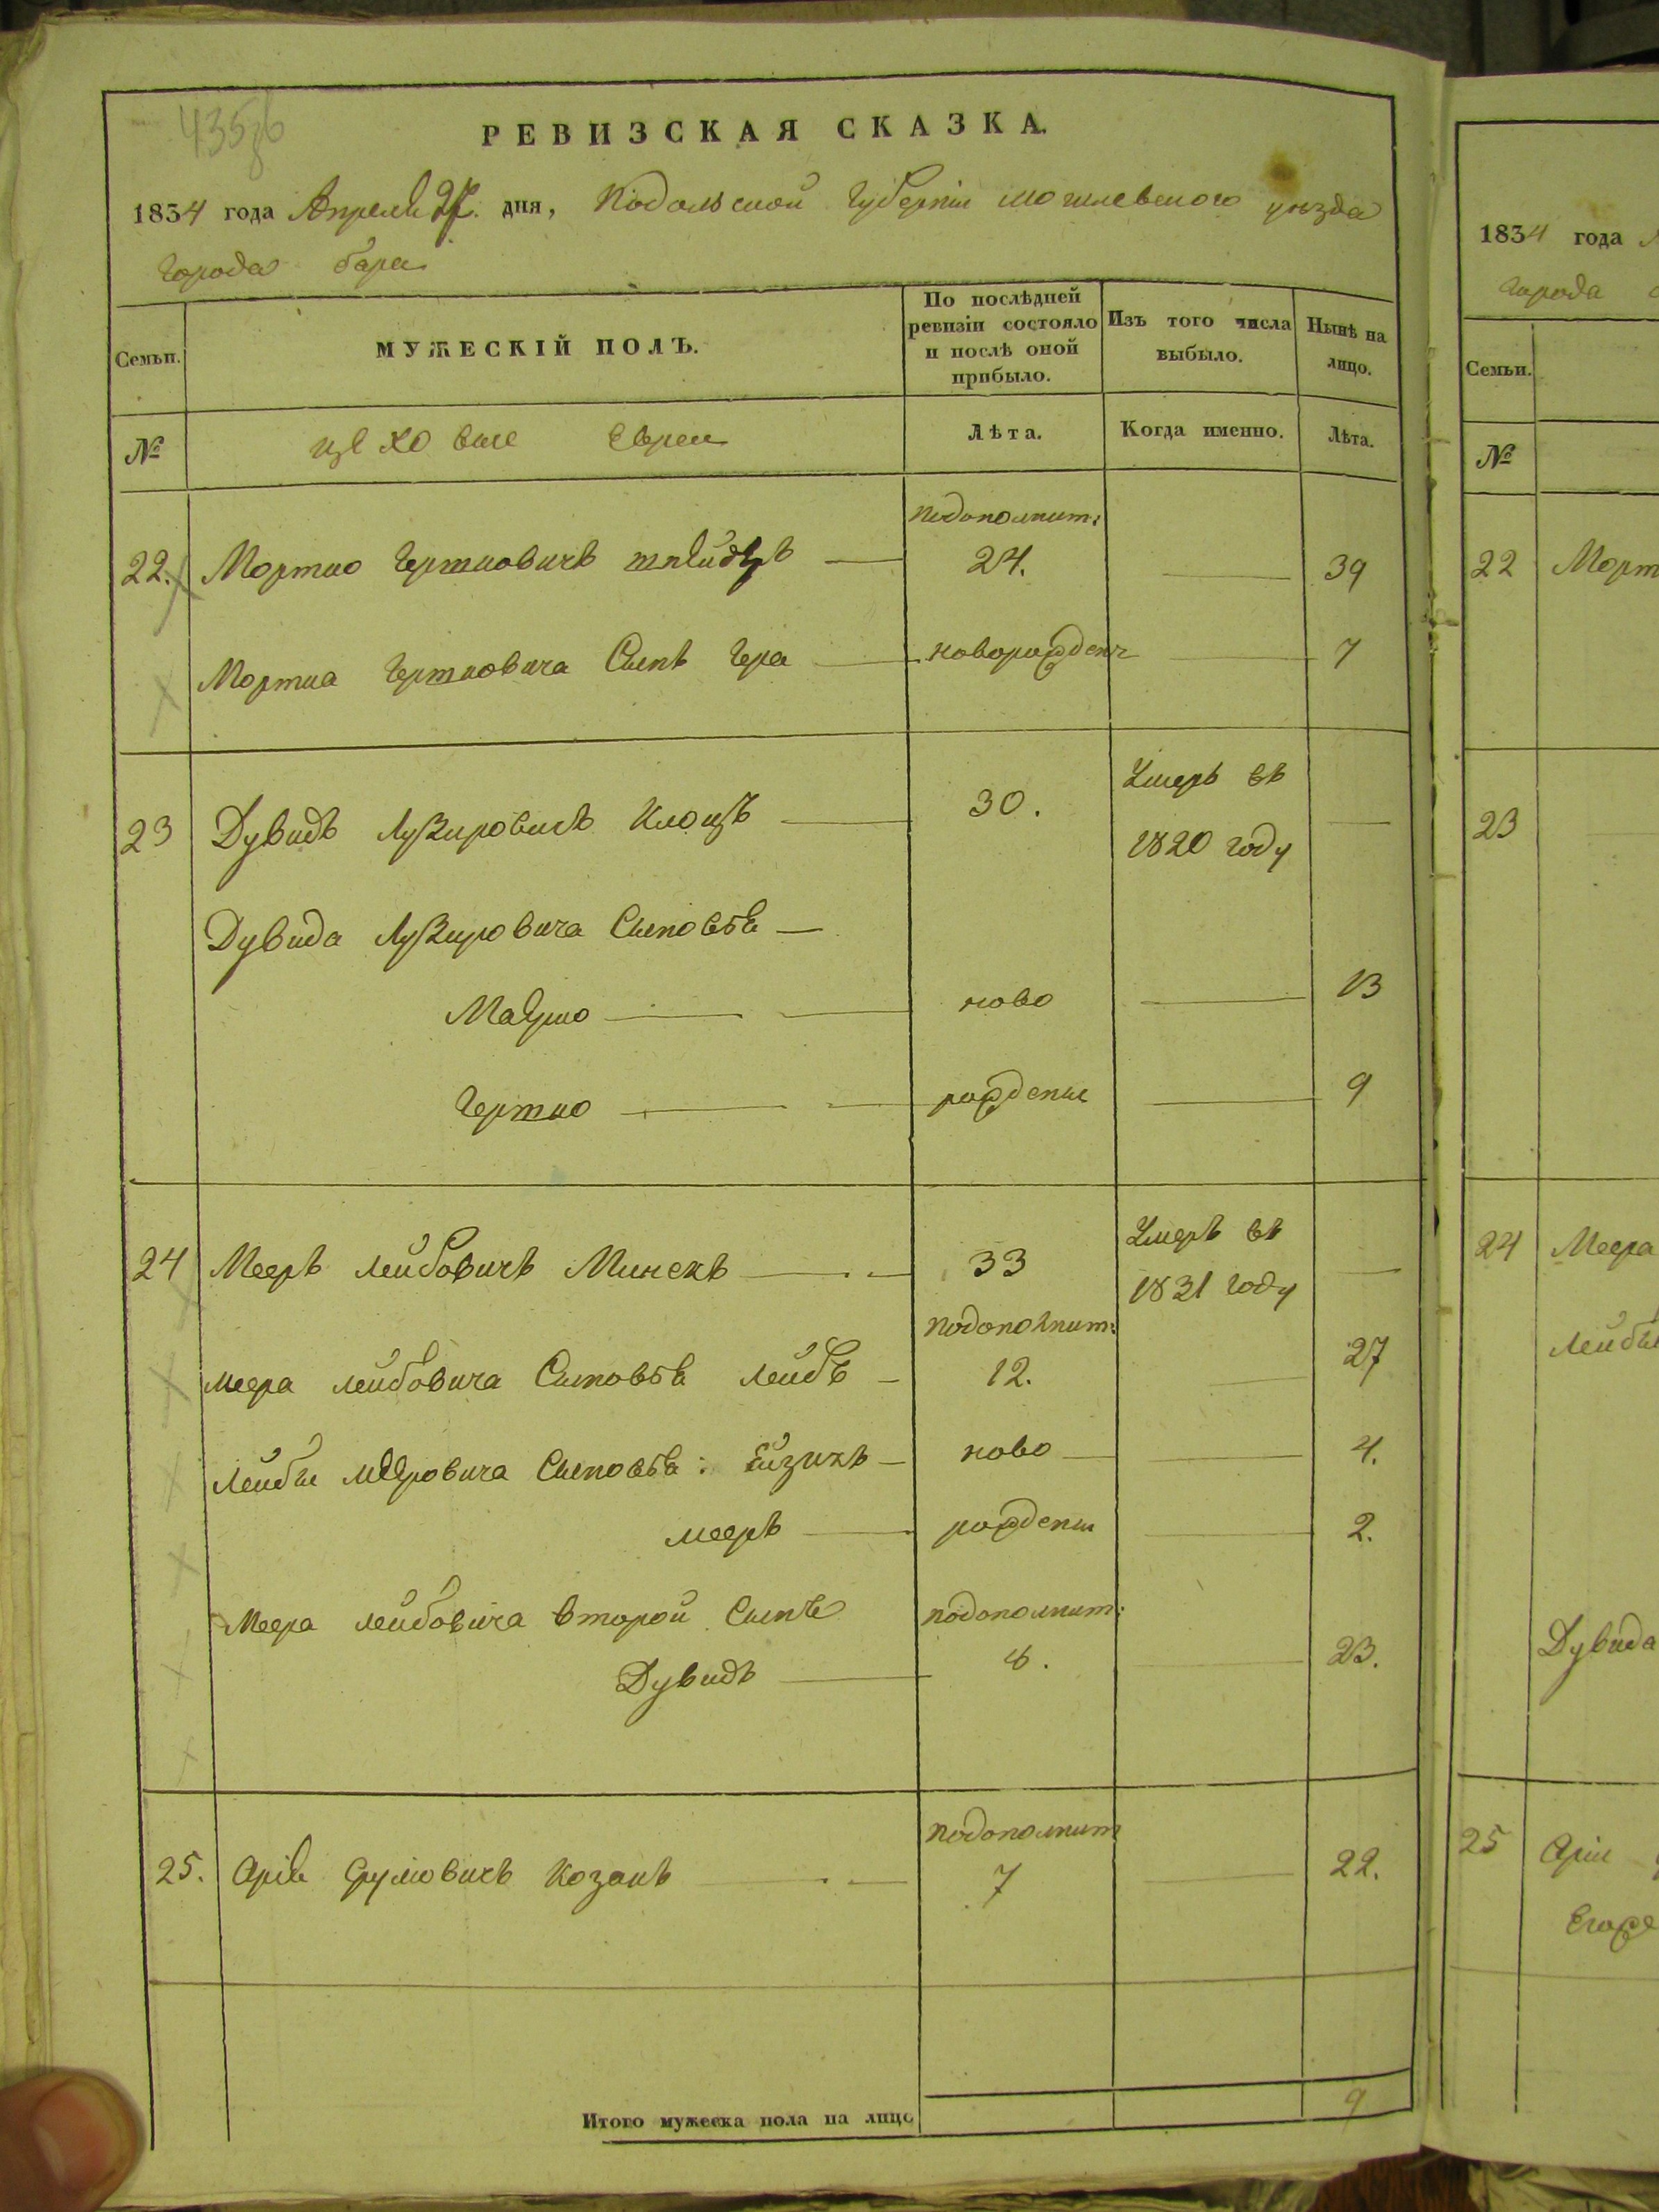 435об
РЕВИЗСКАЯ СКАЗКА.
1834 года Апреля 27. дня, Подольской Губерніи Могилевского уѣзда
города бара
Семьи.
МУЖЕСКІЙ ПОЛЪ.
По послѣдней ревизіи состояло и послѣ оной прибыло.
Изъ того числа выбыло.
Нынѣ на лицо.
№
цеховые Евреи
Лѣта.
Когда именно.
Лѣта.
подополнит:
22. Мортко Гершковичъ 24. 39
Мортка Гершковича Сынъ Гера новорожден 7
23 Дувидъ Лузировичъ Клоцъ 30. Умеръ въ
1820 году
Дувида Лузировича Сыновья
Маврко ново 13
Гершко рождены 9
24 Мееръ Лейбовичъ Минскъ 33 Умеръ въ
1831 году
подополнит:
Меера Лейбовича Сыновья Лейбъ 12. 27
Лейбы Меровича Сыновья: Ейзикъ ново 4.
Мееръ рождены 2.
Меера Лейбовича второй Сынъ подополнит:
Дувидъ 8. 23.
подополнит
25. Аріе Срулювичъ Козакъ 7 22.
Итого мужеска пола на лицо 9
1834 года
города
Семьи.
№
22 Морт
23
24 Меера
Лейбы
Дувида
25 Аріи
Егоже